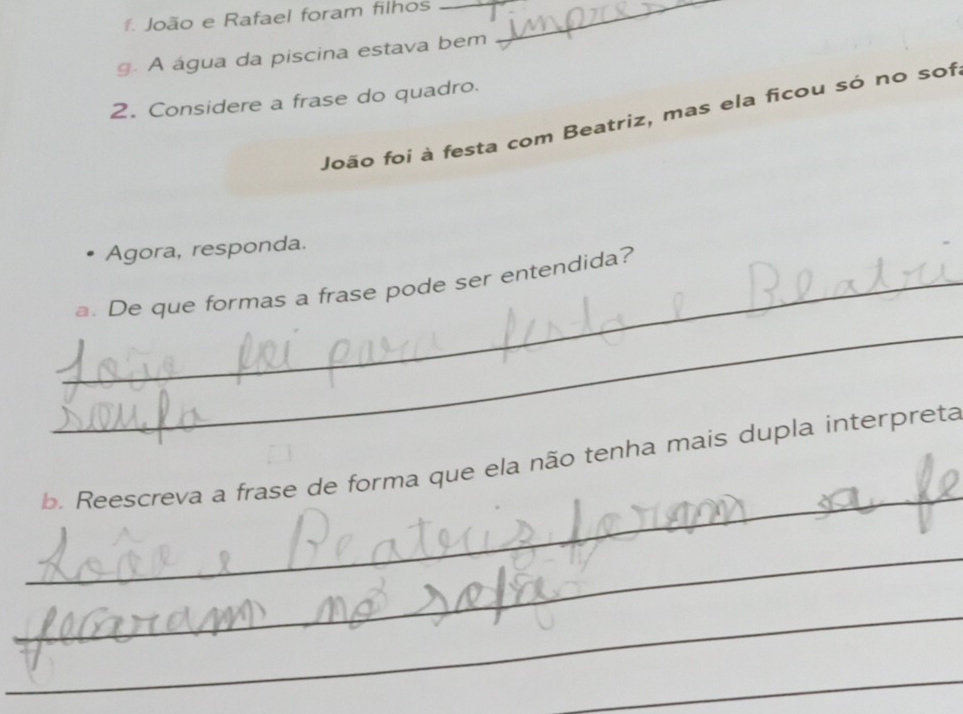 f. João e Rafael foram filhos
g. A água da piscina estava bem
2. Considere a frase do quadro.
João foi à festa com Beatriz, mas ela ficou só no sofá
• Agora, responda.
a. De que formas a frase pode ser entendida?
João foi para festa e Beatri
b. Reescreva a frase de forma que ela não tenha mais dupla interpreta
João e Beateriz foram a fe
no sofa